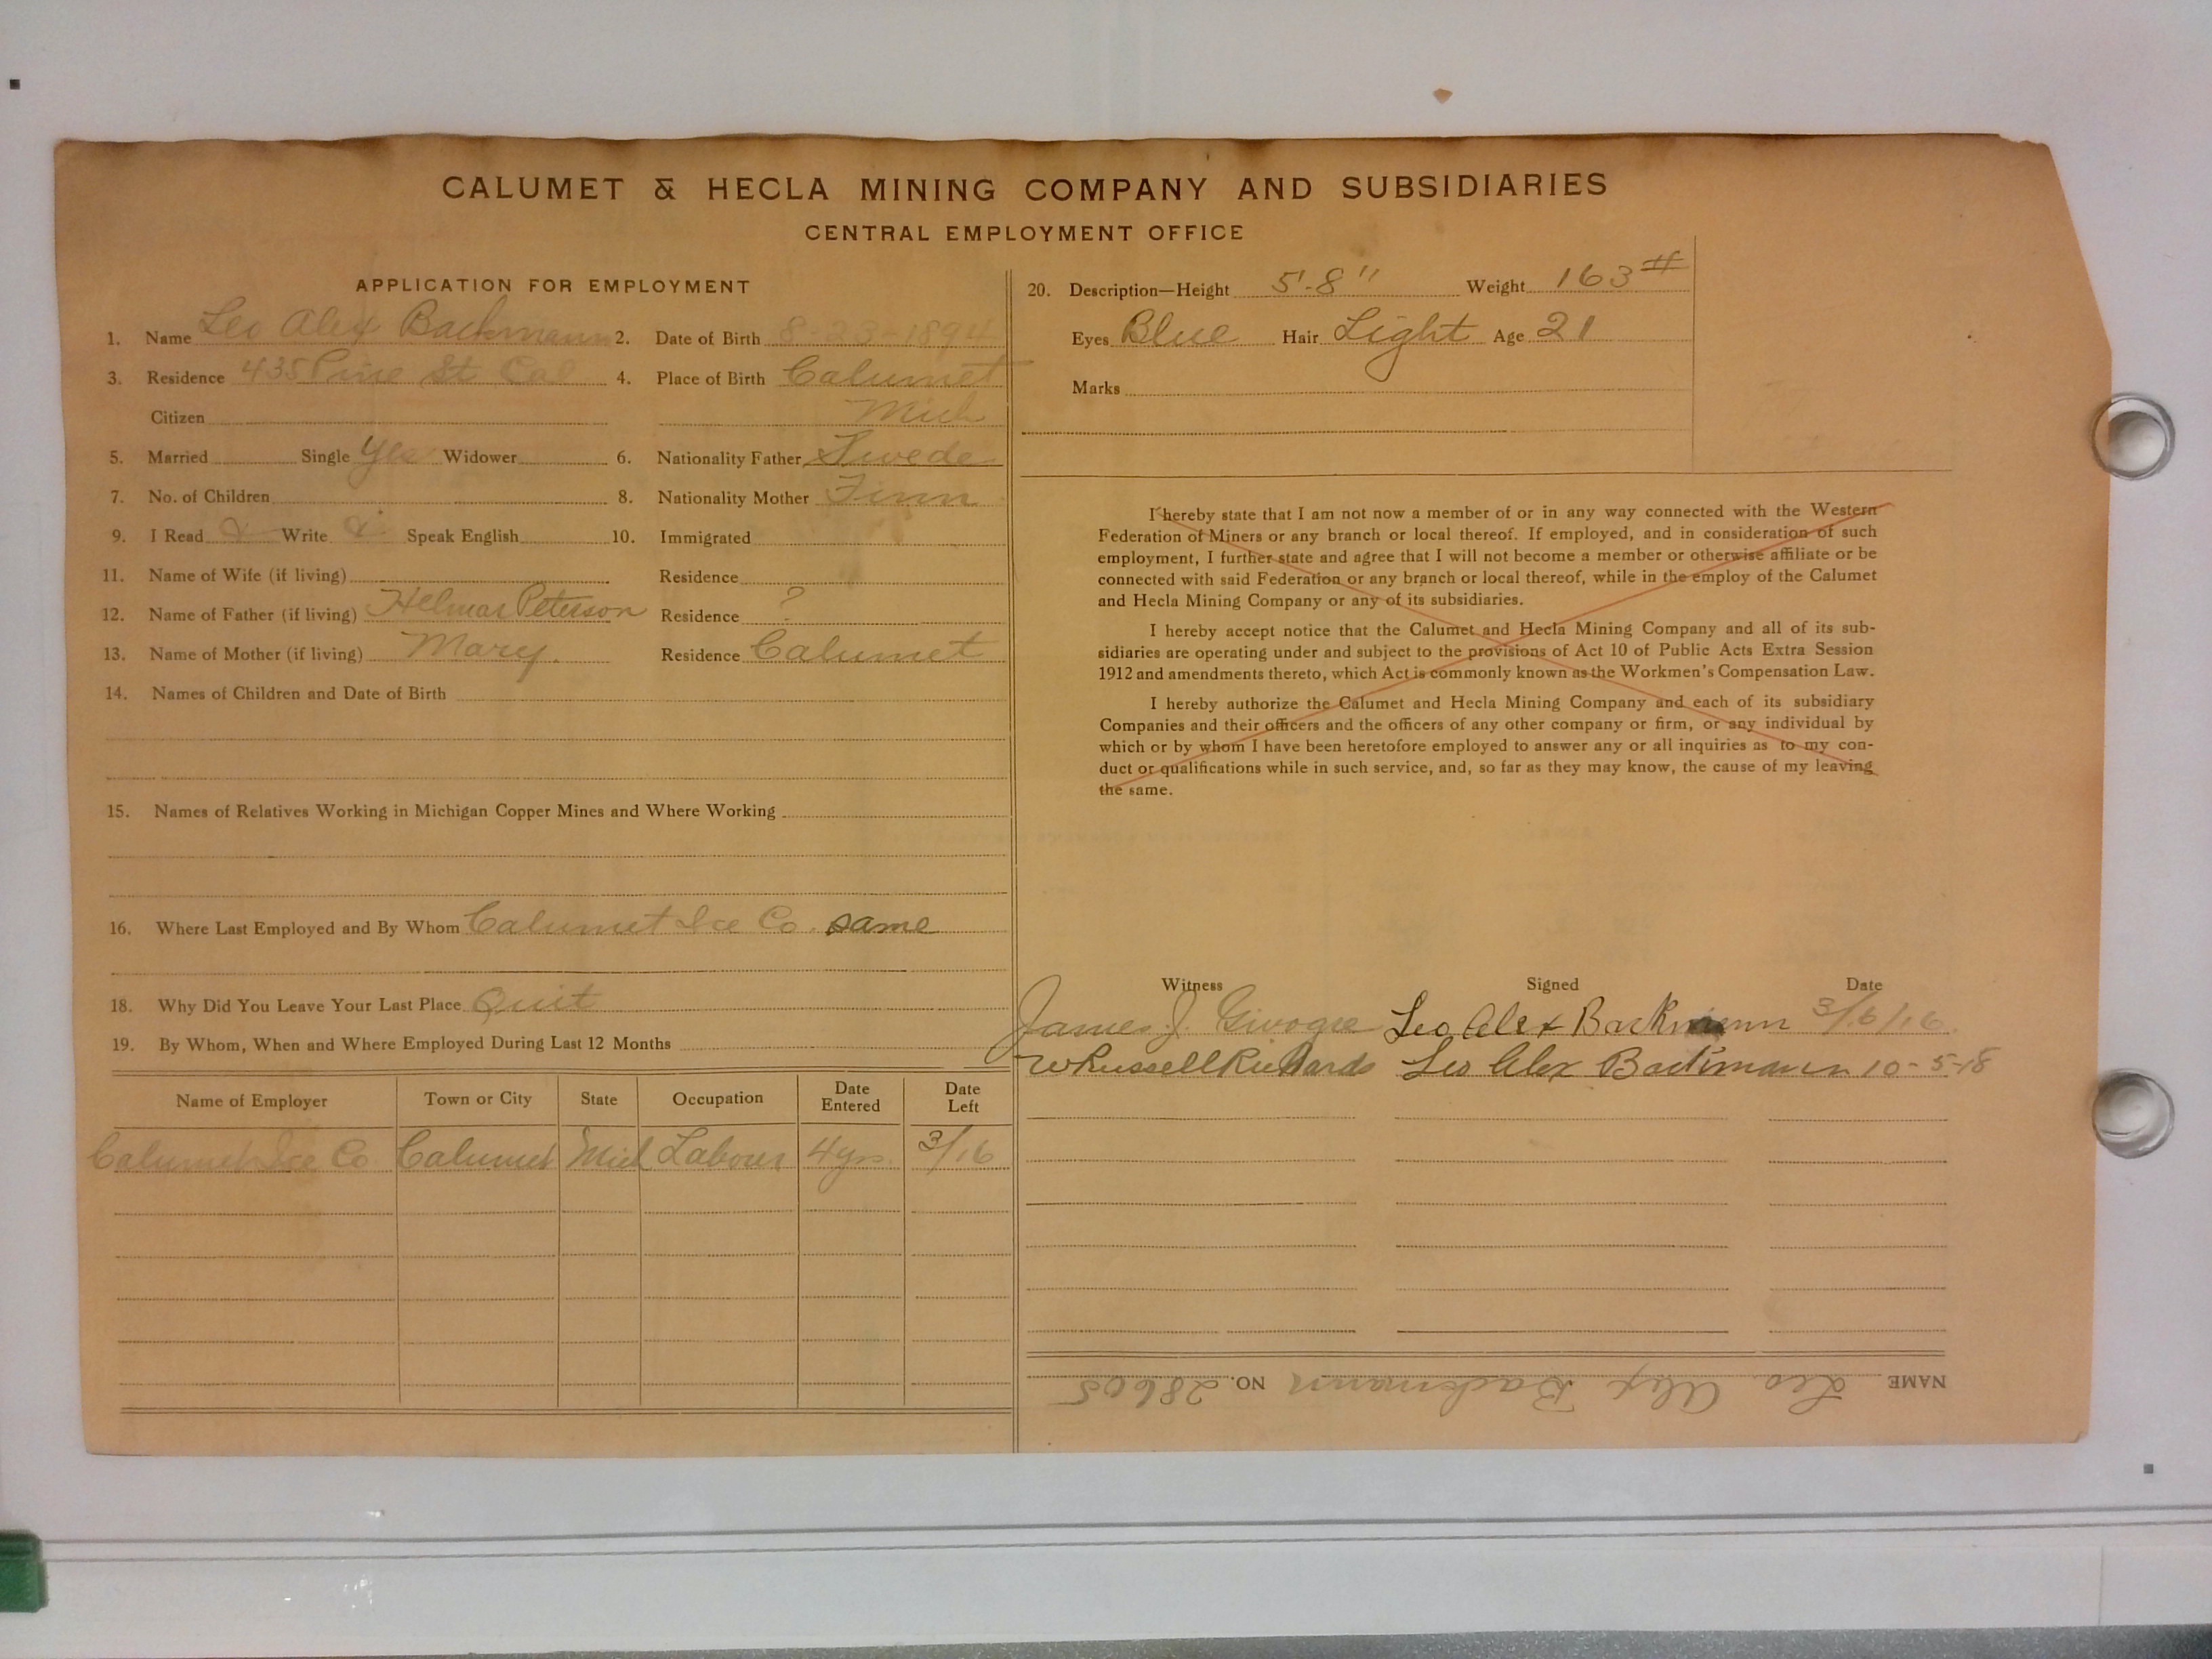 CALUMET & HECLA MINING COMPANY AND SUBSIDIARIES
CENTRAL EMPLOYMENT OFFICE
APPLICATION FOR EMPLOYMENT
1. Name Leo Alex Backmann 2. Date of Birth 8-23-1894
3. Residence 435 Pine St Cal 4. Place of Birth Calumet
Citizen Mich
5. Married Single Yes Widower 6. Nationality Father Swede
7. No. of Children 8. Nationality Mother Finn
9. I Read Write Speak English 10. Immigrated
11. Name of Wife (if living) Residence
12. Name of Father (if living) Helmar Peterson Residence ?
13. Name of Mother (if living) Mary. Residence Calumet
14. Names of Children and Date of Birth
15. Names of Relatives Working in Michigan Copper Mines and Where Working
16. Where Last Employed and By Whom Calumet Ice Co. same
18. Why Did You Leave Your Last Place Quit
19. By Whom, When and Where Employed During Last 12 Months
Name of Employer Town or City State Occupation Date Entered Date Left
Calumet Ice Co Calumet Mich Labour 4 yrs. 3/16
20. Description—Height 5'-8" Weight 163#
Eyes Blue Hair Light Age 21
Marks
I hereby state that I am not now a member of or in any way connected with the Western
Federation of Miners or any branch or local thereof. If employed, and in consideration of such
employment, I further state and agree that I will not become a member or otherwise affiliate or be
connected with said Federation or any branch or local thereof, while in the employ of the Calumet
and Hecla Mining Company or any of its subsidiaries.
I hereby accept notice that the Calumet and Hecla Mining Company and all of its sub-
sidiaries are operating under and subject to the provisions of Act 10 of Public Acts Extra Session
1912 and amendments thereto, which Act is commonly known as the Workmen's Compensation Law.
I hereby authorize the Calumet and Hecla Mining Company and each of its subsidiary
Companies and their officers and the officers of any other company or firm, or any individual by
which or by whom I have been heretofore employed to answer any or all inquiries as to my con-
duct or qualifications while in such service, and, so far as they may know, the cause of my leaving
the same.
Witness Signed Date
James J. Leo Alex Backmann 3/6/16.
W Russell Richards Leo Alex Backmann 10-5-18
NAME Leo Alex Backmann NO. 28605